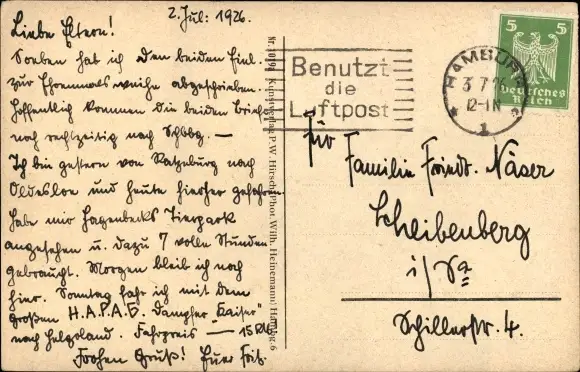 2. Jul: 1926.
Liebe Eltern!
Soeben hat ich den beiden Einl.
zur Ehrenmalsweihe abgeschrieben.
Hoffentlich kommen die beiden Briefe
noch rechtzeitig nach Schbbg. —
Ich bin gestern von Ratzeburg nach
Oldesloe und heute hierher gefahren.
Habe mir Hagenbecks Tierpark
angesehen u. dazu 7 volle Stunden
gebraucht. Morgen bleib ich noch
hier. Sonntag fahr ich mit dem
großen H.A.P.A.G. Dampfer "Kaiser"
nach Helgoland. Fahrpreis — 15 RM.
Frohen Gruß! Euer Fritz.
Nr. 1019 Kunstverlag P.W. Hirsch (Phot. Wilh. Heinemann) Hambg. 6
Benutzt
die
Luftpost
HAMBURG
3.7.26
12-1N
1
5 5
Deutsches
Reich
Für
Familie Friedr. Näser
Scheibenberg
i/Sa
Schillerstr. 4.